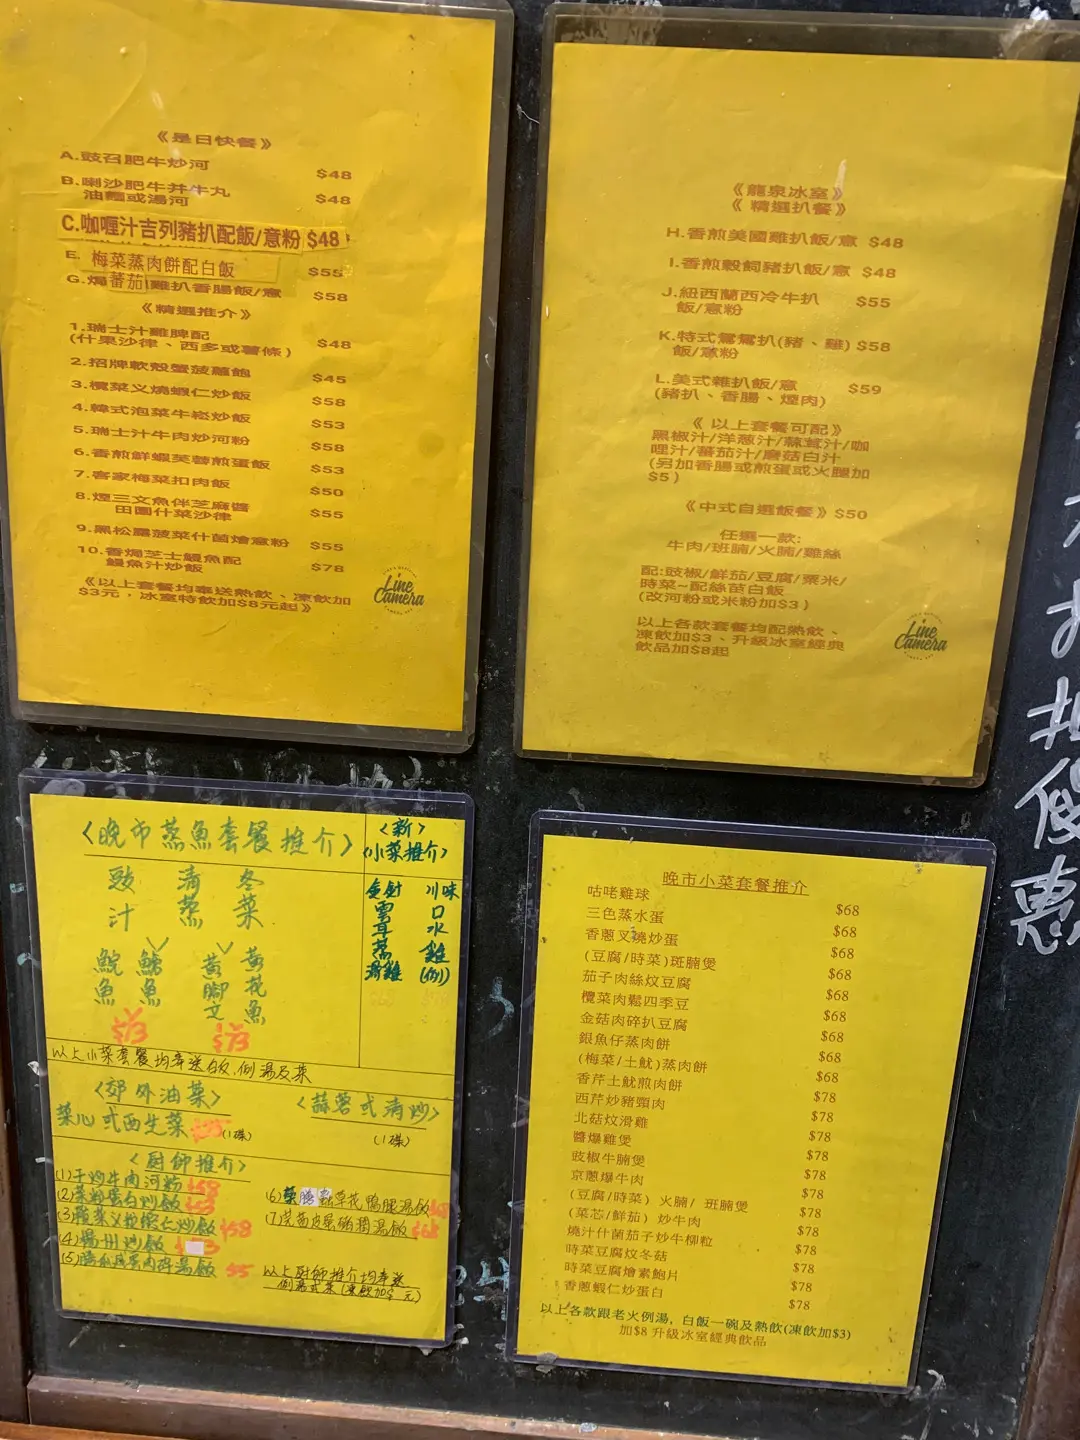 《是日快餐》
A.豉召肥牛炒河 $48
B.喇沙肥牛并牛丸 $48
油麵或湯河
C.咖喱汁吉列豬扒配飯/意粉 $48
E. 梅菜蒸肉餅配白飯 $55
G.焗蕃茄雞扒香腸飯/意 $58
《精選推介》
1.瑞士汁雞脾配
(什果沙律、西多或薯條) $48
2.招牌軟殼蟹菠蘿飽 $45
3.欖菜义燒蝦仁炒飯 $58
4.韓式泡菜牛崧炒飯 $53
5.瑞士汁牛肉炒河粉 $58
6.香煎鮮蝦芙蓉煎蛋飯 $53
7.客家梅菜扣肉飯 $50
8.煙三文魚伴芝麻醬
田園什菜沙律 $55
9.黑松露菠菜什菌燴意粉 $55
10.香焗芝士鰻魚配
鰻魚汁炒飯 $78
《以上套餐均奉送熱飲、凍飲加
$3元，冰室特飲加$8元起》
Line
Camera
《龍泉冰室》
《精選扒餐》
H.香煎美國雞扒飯/意 $48
I.香煎穀飼豬扒飯/意 $48
J.紐西蘭西冷牛扒 $55
飯/意粉
K.特式鴛鴦扒(豬、雞) $58
飯/意粉
L.美式雜扒飯/意 $59
(豬扒、香腸、煙肉)
《以上套餐可配》
黑椒汁/洋葱汁/蒜茸汁/咖
哩汁/蕃茄汁/磨菇白汁
(另加香腸或煎蛋或火腿加
$5)
《中式自選飯餐》$50
任選一款:
牛肉/班腩/火腩/雞絲
配:豉椒/鮮茄/豆腐/粟米/
時菜~配絲苗白飯
(改河粉或米粉加$3)
以上各款套餐均配熱飲、
凍飲加$3、升級冰室經典
飲品加$8起
Line
Camera
〈晚市蒸魚套餐推介〉
豉汁 清蒸 冬菜
鯇魚 鱠魚 黃腳文 黃花魚
$73 $73
以上小菜套餐均奉送白飯,例湯及菜
〈新〉
〈小菜推介〉
金針雲耳蒸滑雞
川味口水雞(例)
〈郊外油菜〉
菜心或西生菜 (1碟)
〈蒜蓉或清炒〉
(1碟)
〈厨師推介〉
(1)干炒牛肉河粉 $58
炒飯 $53
炒飯 $58
(4)揚州炒飯
湯飯
草花鴨腿湯飯
湯飯 $68
以上厨師推介均奉送
例湯或菜(凍飲加$ 元)
晚市小菜套餐推介
咕咾雞球 $68
三色蒸水蛋 $68
香蔥叉燒炒蛋 $68
(豆腐/時菜)斑腩煲 $68
茄子肉絲炆豆腐 $68
欖菜肉鬆四季豆 $68
金菇肉碎扒豆腐 $68
銀魚仔蒸肉餅 $68
(梅菜/土魷)蒸肉餅 $68
香芹土魷煎肉餅 $78
西芹炒豬頸肉 $78
北菇炆滑雞 $78
醬爆雞煲 $78
豉椒牛腩煲 $78
京蔥爆牛肉 $78
(豆腐/時菜) 火腩/ 斑腩煲 $78
(菜芯/鮮茄) 炒牛肉 $78
燒汁什菌茄子炒牛柳粒 $78
時菜豆腐炆冬菇 $78
時菜豆腐燴素鮑片 $78
香蔥蝦仁炒蛋白 $78
以上各款跟老火例湯, 白飯一碗及熱飲(凍飲加$3)
加$8 升級冰室經典飲品
惠